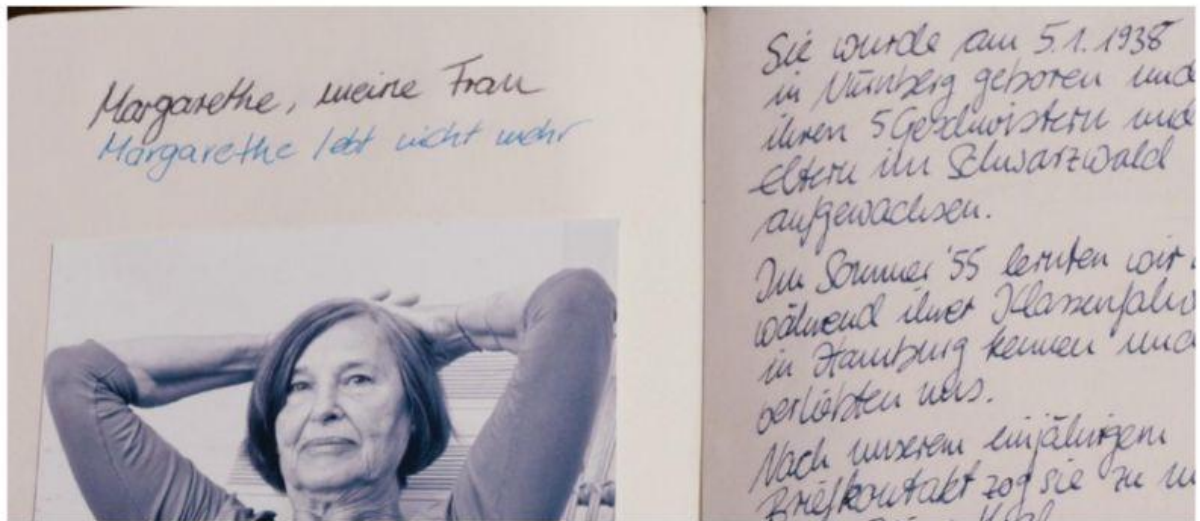 Margarethe, meine Frau
Margarethe lebt nicht mehr
Sie wurde am 5.1.1938
in Nürnberg geboren und
ihren 5 Geschwistern und
Eltern im Schwarzwald
aufgewachsen.
Im Sommer '55 lernten wir
während ihrer Klassenfahr
in Hamburg kennen und
verliebten uns.
Nach unserem einjährigem
Briefkontakt zog sie zu